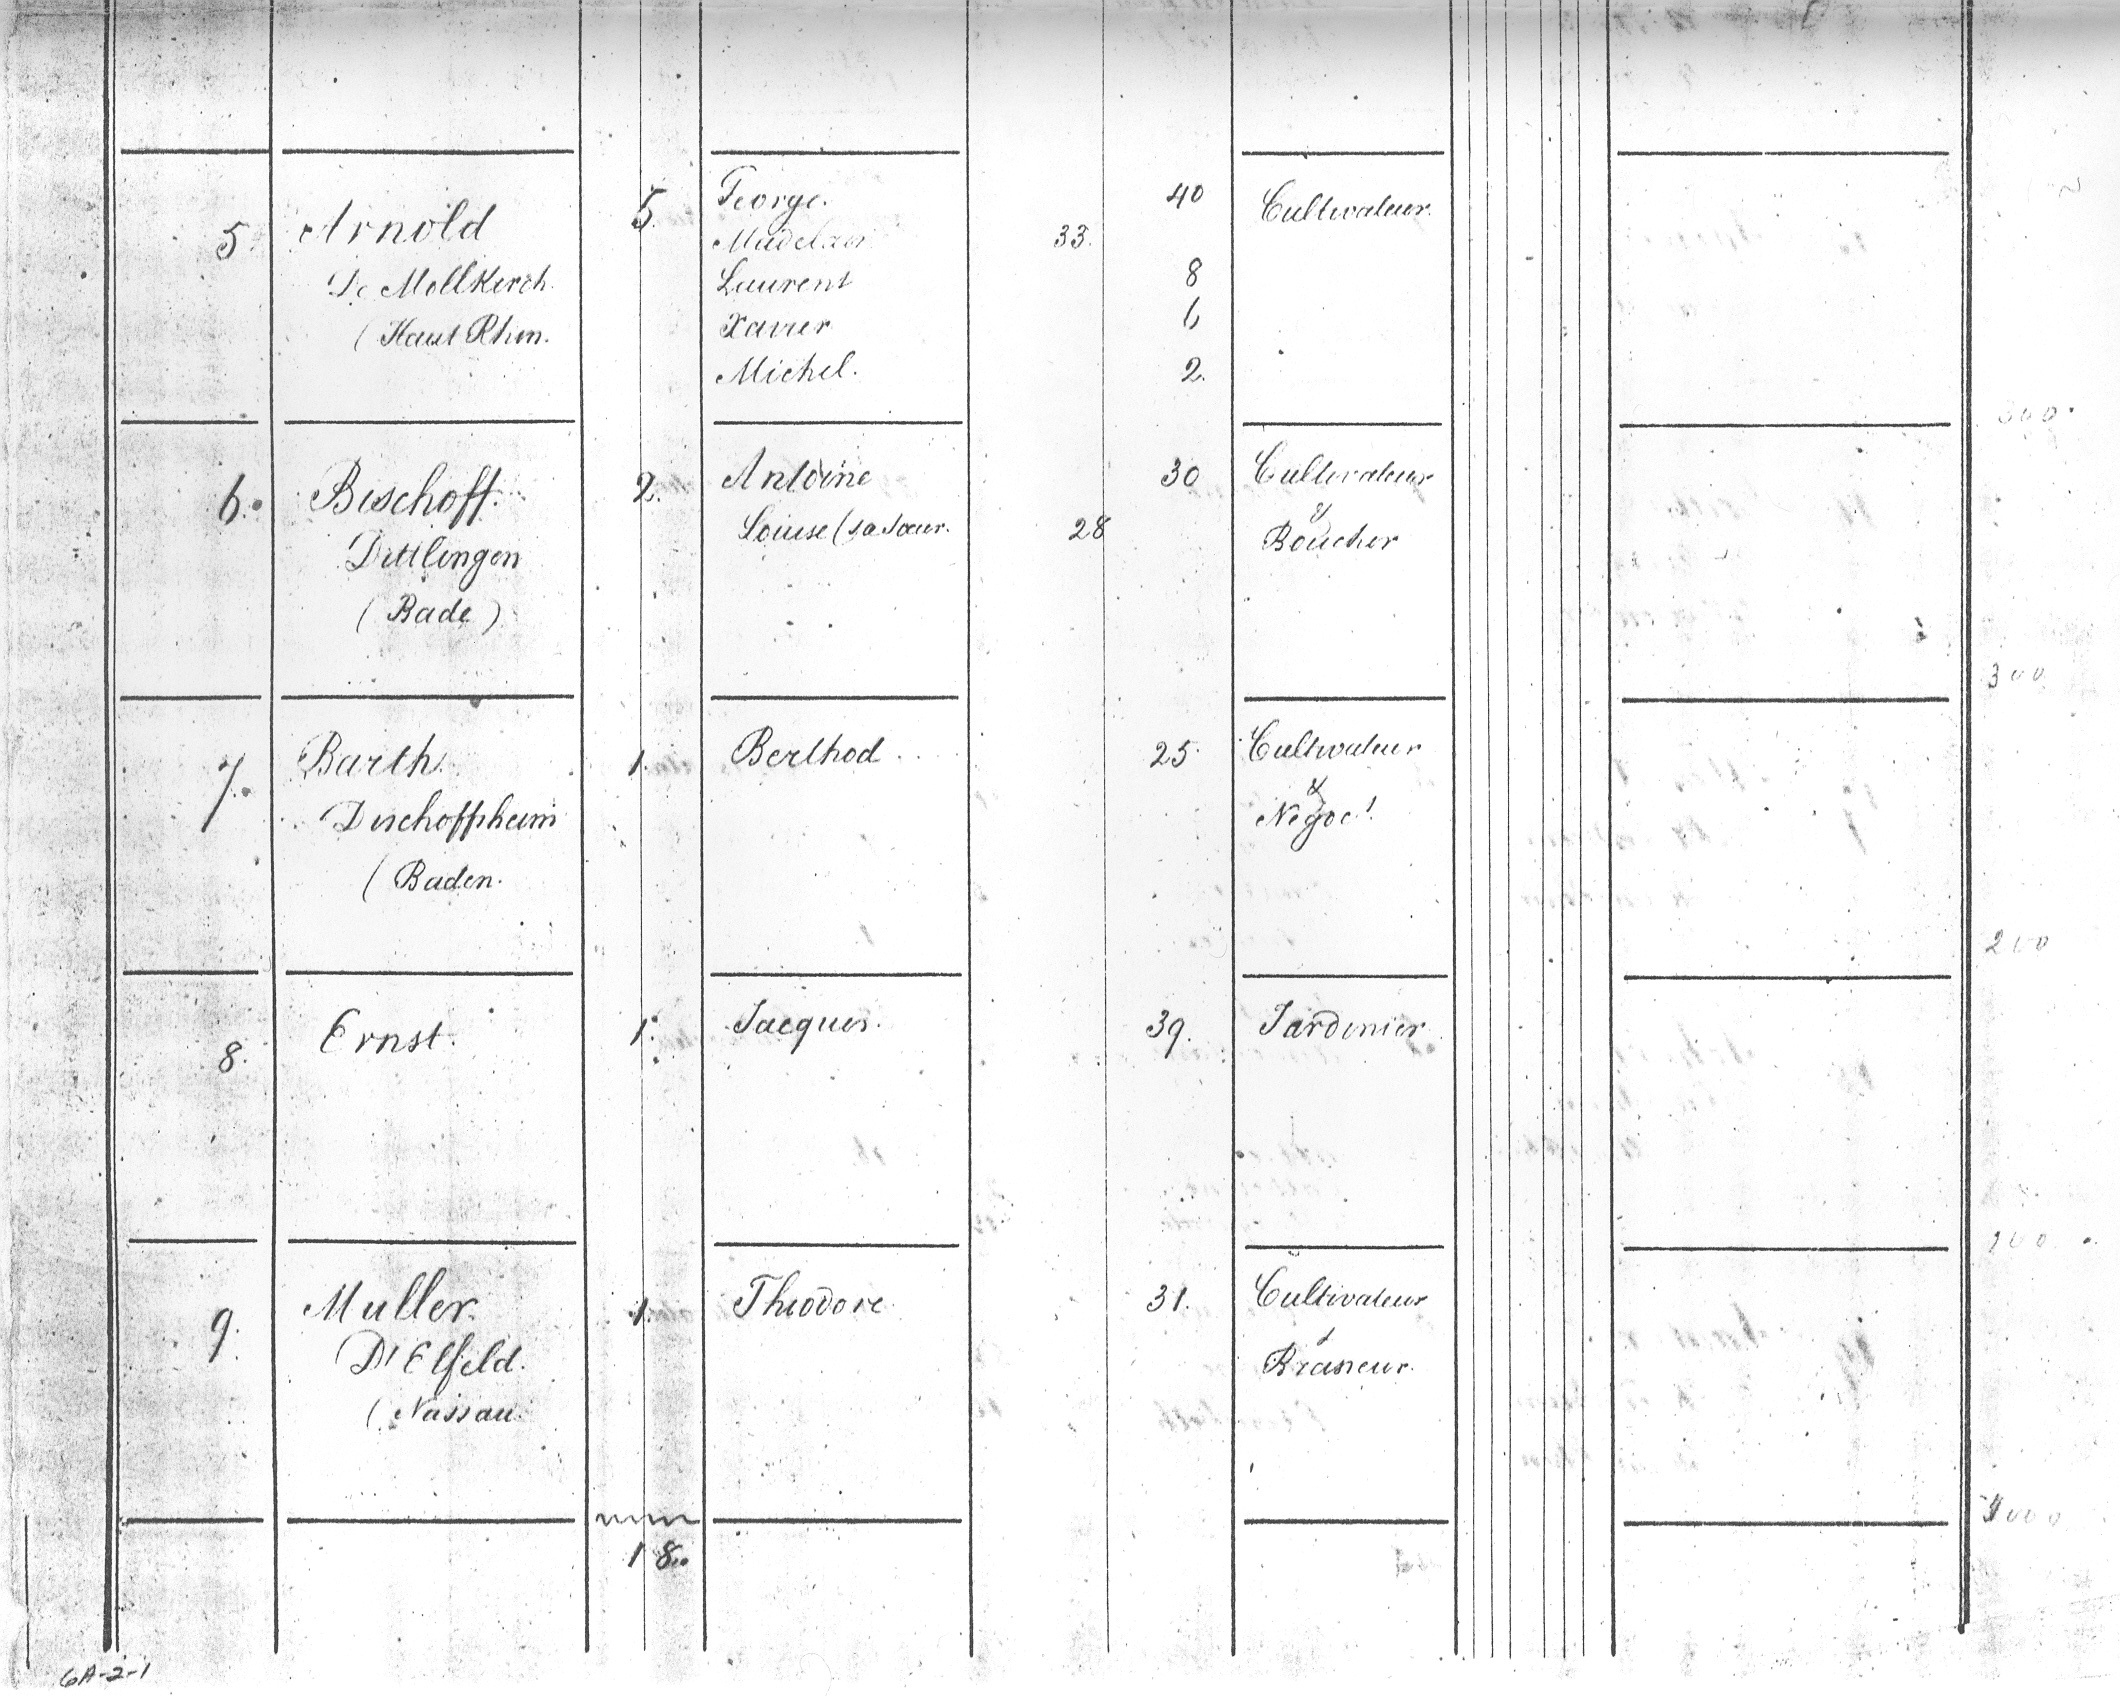 5. Arnold 5. George. 40 Cultivateur.
Madelaine 33.
De Mollkirch. Laurent 8
(Haut Rhin. Xavier 6
Michel. 2.
300.
6. Bischoff. 2. Antoine 30 Cultivateur
Dittlingen Louise (sa soeur. 28 & Boucher
(Bade)
300
7. Barth. 1. Berthod 25 Cultivateur
Dischoffsheim & Negoct.
(Baden.
200
8. Ernst. 1. Jacques. 39. Jardinier
200
9. Muller. 1. Theodore 31. Cultivateur
D'Elfeld. & Brasseur.
(Nassau.
18.
6A-2-1